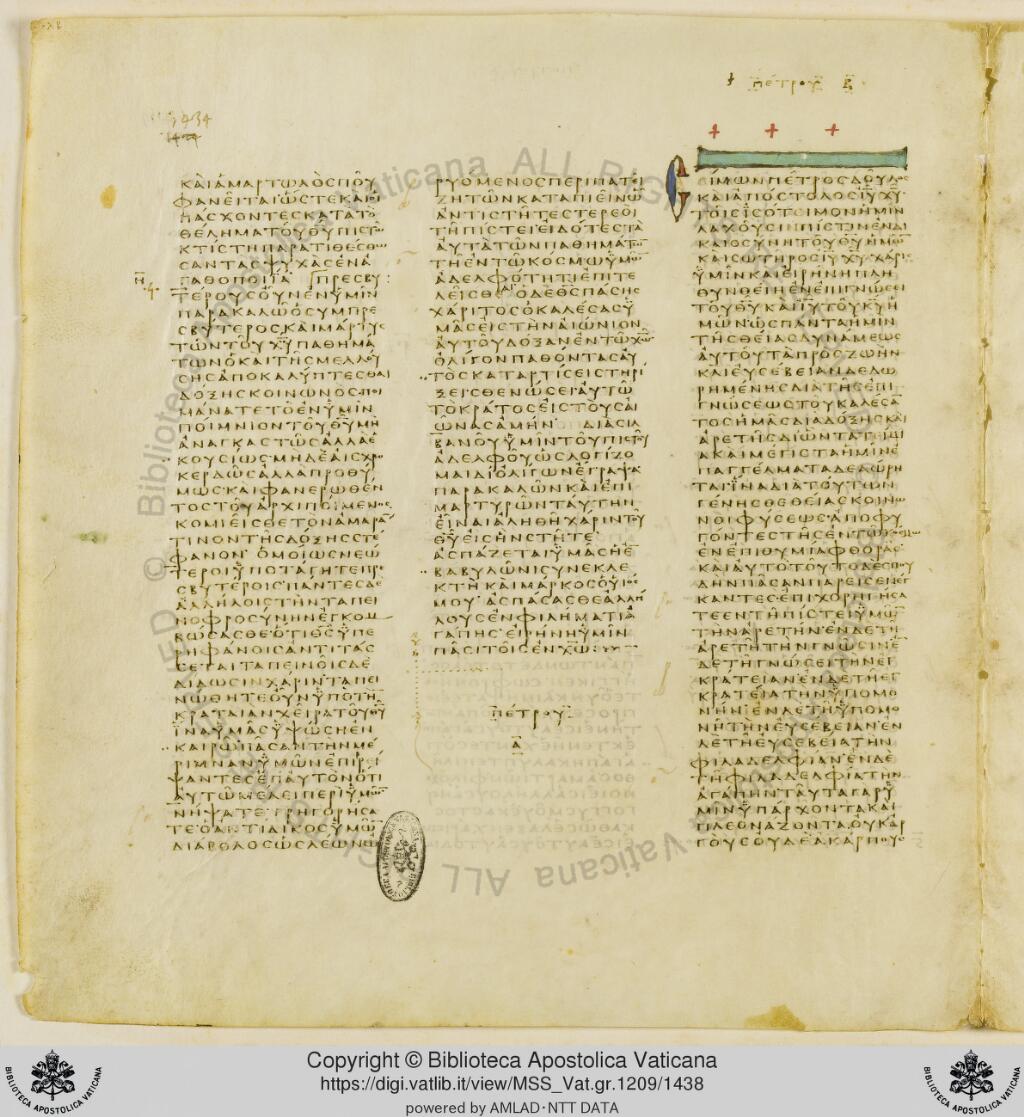 Ϯ ΠΕΤΡΟΥ Β
1434
ΚΑΙΑΜΑΡΤΩΛΟΣΠΟΥ
ΦΑΝΕΙΤΑΙΩΣΤΕΚΑΙΟΙ
ΠΑΣΧΟΝΤΕΣΚΑΤΑΤΟ
ΘΕΛΗΜΑΤΟΥΘ̅Υ̅ΠΙΣΤΩ
ΚΤΙΣΤΗΠΑΡΑΤΙΘΕΣΘΩ
ΣΑΝΤΑΣΨΥΧΑΣΕΝΑ
Η ΓΑΘΟΠΟΙΙΑ ΠΡΕΣΒΥ
ΤΕΡΟΥΣΟΥΝΕΝΥΜΙΝ
ΠΑΡΑΚΑΛΩΟΣΥΜΠΡΕ
ΣΒΥΤΕΡΟΣΚΑΙΜΑΡΤΥΣ
ΤΩΝΤΟΥΧ̅Υ̅ΠΑΘΗΜΑ
ΤΩΝΟΚΑΙΤΗΣΜΕΛΛΟΥ
ΣΗΣΑΠΟΚΑΛΥΠΤΕΣΘΑΙ
ΔΟΞΗΣΚΟΙΝΩΝΟΣΠΟΙ
ΜΑΝΑΤΕΤΟΕΝΥΜΙΝ
ΠΟΙΜΝΙΟΝΤΟΥΘ̅Υ̅ΜΗ
ΑΝΑΓΚΑΣΤΩΣΑΛΛΑΕ
ΚΟΥΣΙΩΣΜΗΔΕΑΙΣΧΡΟ
ΚΕΡΔΩΣΑΛΛΑΠΡΟΘΥ
ΜΩΣΚΑΙΦΑΝΕΡΩΘΕΝ
ΤΟΣΤΟΥΑΡΧΙΠΟΙΜΕΝΟΣ
ΚΟΜΙΕΙΣΘΕΤΟΝΑΜΑΡΑ
ΤΙΝΟΝΤΗΣΔΟΞΗΣΣΤΕ
ΦΑΝΟΝ ΟΜΟΙΩΣΝΕΩ
ΤΕΡΟΙΥΠΟΤΑΓΗΤΕΠΡΕ
ΣΒΥΤΕΡΟΙΣΠΑΝΤΕΣΔΕ
ΑΛΛΗΛΟΙΣΤΗΝΤΑΠΕΙ
ΝΟΦΡΟΣΥΝΗΝΕΓΚΟΜ
ΒΩΣΑΣΘΕΟΤΙΘ̅Σ̅ΥΠΕ
ΡΗΦΑΝΟΙΣΑΝΤΙΤΑΣ
ΣΕΤΑΙΤΑΠΕΙΝΟΙΣΔΕ
ΔΙΔΩΣΙΝΧΑΡΙΝΤΑΠΕΙ
ΝΩΘΗΤΕΟΥΝΥΠΟΤΗΝ
ΚΡΑΤΑΙΑΝΧΕΙΡΑΤΟΥΘ̅Υ̅
ΙΝΑΥΜΑΣΥΨΩΣΗΕΝ
ΚΑΙΡΩΠΑΣΑΝΤΗΝΜΕ
ΡΙΜΝΑΝΥΜΩΝΕΠΙΡΕΙ
ΨΑΝΤΕΣΕΠΑΥΤΟΝΟΤΙ
ΑΥΤΩΜΕΛΕΙΠΕΡΙΥΜΩ
ΝΗΨΑΤΕΓΡΗΓΟΡΗΣΑ
ΤΕΟΑΝΤΙΔΙΚΟΣΥΜΩ
ΔΙΑΒΟΛΟΣΩΣΛΕΩΝΩ
ΡΥΟΜΕΝΟΣΠΕΡΙΠΑΤΕΙ
ΖΗΤΩΝΚΑΤΑΠΙΕΙΝΩ
ΑΝΤΙΣΤΗΤΕΣΤΕΡΕΟΙ
ΤΗΠΙΣΤΕΙΕΙΔΟΤΕΣΤΑ
ΑΥΤΑΤΩΝΠΑΘΗΜΑΤΩ
ΤΗΕΝΤΩΚΟΣΜΩΥΜΩ
ΑΔΕΛΦΟΤΗΤΙΕΠΙΤΕ
ΛΕΙΣΘΕΟΔΕΘ̅Σ̅ΠΑΣΗΣ
ΧΑΡΙΤΟΣΟΚΑΛΕΣΑΣΥ
ΜΑΣΕΙΣΤΗΝΑΙΩΝΙΟΝ
ΑΥΤΟΥΔΟΞΑΝΕΝΤΩΧ̅Ω̅
ΟΛΙΓΟΝΠΑΘΟΝΤΑΣΑΥ
ΤΟΣΚΑΤΑΡΤΙΣΕΙΣΤΗΡΙ
ΞΕΙΣΘΕΝΩΣΕΙΑΥΤΩ
ΤΟΚΡΑΤΟΣΕΙΣΤΟΥΣΑΙ
ΩΝΑΣΑΜΗΝ ΔΙΑΣΙΛ
ΒΑΝΟΥΥΜΙΝΤΟΥΠΙΣΤΟΥ
ΑΔΕΛΦΟΥΩΣΛΟΓΙΖΟ
ΜΑΙΔΙΟΛΙΓΩΝΕΓΡΑΨΑ
ΠΑΡΑΚΑΛΩΝΚΑΙΕΠΙ
ΜΑΡΤΥΡΩΝΤΑΥΤΗΝ
ΕΙΝΑΙΑΛΗΘΗΧΑΡΙΝΤΟΥ
Θ̅Υ̅ΕΙΣΗΝΣΤΗΤΕ
ΑΣΠΑΖΕΤΑΙΥΜΑΣΗΕ
ΒΑΒΥΛΩΝΙΣΥΝΕΚΛΕ
ΚΤΗΚΑΙΜΑΡΚΟΣΟΥΙΟΣ
ΜΟΥ ΑΣΠΑΣΑΣΘΕΑΛΛΗ
ΛΟΥΣΕΝΦΙΛΗΜΑΤΙΑ
ΓΑΠΗΣΕΙΡΗΝΗΥΜΙΝ
ΠΑΣΙΤΟΙΣΕΝΧ̅Ω̅
ΠΕΤΡΟΥ
Α
ΣΙΜΩΝΠΕΤΡΟΣΔΟΥΛΟΣ
ΚΑΙΑΠΟΣΤΟΛΟΣΙ̅Υ̅Χ̅Υ̅
ΤΟΙΣΙΣΟΤΙΜΟΝΗΜΙΝ
ΛΑΧΟΥΣΙΝΠΙΣΤΙΝΕΝΔΙ
ΚΑΙΟΣΥΝΗΤΟΥΘ̅Υ̅ΗΜΩ
ΚΑΙΣΩΤΗΡΟΣΙ̅Υ̅Χ̅Υ̅ΧΑΡΙΣ
ΥΜΙΝΚΑΙΕΙΡΗΝΗΠΛΗ
ΘΥΝΘΕΙΗΕΝΕΠΙΓΝΩΣΕΙ
ΤΟΥΘ̅Υ̅ΚΑΙΙ̅Υ̅ΤΟΥΚ̅Υ̅Η
ΜΩΝΩΣΠΑΝΤΑΗΜΙΝ
ΤΗΣΘΕΙΑΣΔΥΝΑΜΕΩΣ
ΑΥΤΟΥΤΑΠΡΟΣΖΩΗΝ
ΚΑΙΕΥΣΕΒΕΙΑΝΔΕΔΩ
ΡΗΜΕΝΗΣΔΙΑΤΗΣΕΠΙ
ΓΝΩΣΕΩΣΤΟΥΚΑΛΕΣΑ
ΤΟΣΗΜΑΣΔΙΑΔΟΞΗΣΚΑΙ
ΑΡΕΤΗΣΔΙΩΝΤΑΤΙΜΙ
ΑΚΑΙΜΕΓΙΣΤΑΗΜΙΝΕ
ΠΑΓΓΕΛΜΑΤΑΔΕΔΩΡΗ
ΤΑΙΙΝΑΔΙΑΤΟΥΤΩΝ
ΓΕΝΗΣΘΕΘΕΙΑΣΚΟΙΝΩ
ΝΟΙΦΥΣΕΩΣΑΠΟΦΥ
ΓΟΝΤΕΣΤΗΣΕΝΤΩΚΟΣΜΩ
ΕΝΕΠΙΘΥΜΙΑΦΘΟΡΑΣ
ΚΑΙΑΥΤΟΤΟΥΤΟΔΕΣΠΟΥ
ΔΗΝΠΑΣΑΝΠΑΡΕΙΣΕΝΕΓ
ΚΑΝΤΕΣΕΠΙΧΟΡΗΓΗΣΑ
ΤΕΕΝΤΗΠΙΣΤΕΙΥΜΩ
ΤΗΝΑΡΕΤΗΝΕΝΔΕΤΗ
ΑΡΕΤΗΤΗΝΓΝΩΣΙΝΕ
ΔΕΤΗΓΝΩΣΕΙΤΗΝΕΓ
ΚΡΑΤΕΙΑΝΕΝΔΕΤΗΕΓ
ΚΡΑΤΕΙΑΤΗΝΥΠΟΜΟ
ΝΗΝΕΝΔΕΤΗΥΠΟΜΟ
ΝΗΤΗΝΕΥΣΕΒΕΙΑΝΕΝ
ΔΕΤΗΕΥΣΕΒΕΙΑΤΗΝ
ΦΙΛΑΔΕΛΦΙΑΝΕΝΔΕ
ΤΗΦΙΛΑΔΕΛΦΙΑΤΗΝ
ΑΓΑΠΗΝΤΑΥΤΑΓΑΡΥ
ΜΙΝΥΠΑΡΧΟΝΤΑΚΑΙ
ΠΛΕΟΝΑΖΟΝΤΑΟΥΚΑΡ
ΓΟΥΣΟΥΔΕΑΚΑΡΠΟΥΣ
Copyright © Biblioteca Apostolica Vaticana
https://digi.vatlib.it/view/MSS_Vat.gr.1209/1438
powered by AMLAD·NTT DATA
BIBLIOTECA APOSTOLICA VATICANA
BIBLIOTECA APOSTOLICA VATICANA